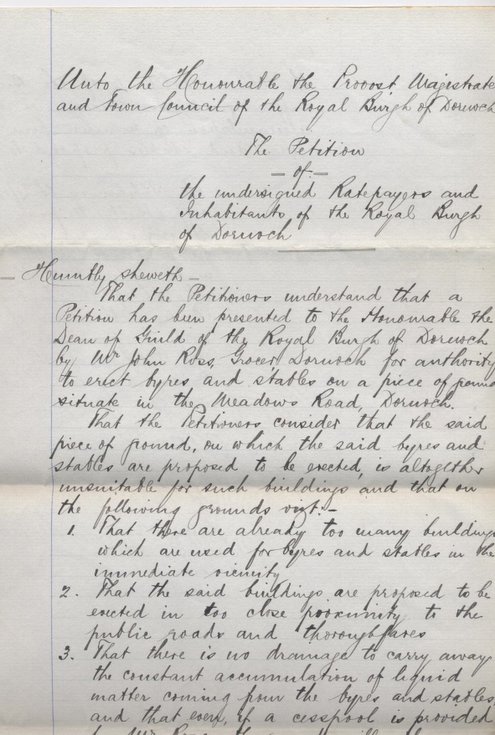 Unto the Honourable the Provost, Magistrates
and Town Council of the Royal Burgh of Dornoch
The Petition
— of —
the undersigned Ratepayers and
Inhabitants of the Royal Burgh
of Dornoch
— Humbly sheweth —
That the Petitioners understand that a
Petition has been presented to the Honourable the
Dean of Guild of the Royal Burgh of Dornoch
by Mr John Ross, Grocer, Dornoch for authority
to erect byres, and stables on a piece of ground
situate in the Meadows Road, Dornoch.
That the Petitioners consider that the said
piece of ground, on which the said byres and
stables are proposed to be erected, is altogether
unsuitable for such buildings and that on
the following grounds vizt:-
1. That there are already too many buildings
which are used for byres and stables in the
immediate vicinity
2. That the said buildings are proposed to be
erected in too close proximity to the
public roads and thoroughfares
3. That there is no drainage to carry away
the constant accumulation of liquid
matter coming from the byres and stables,
and that even, if a cesspool is provided